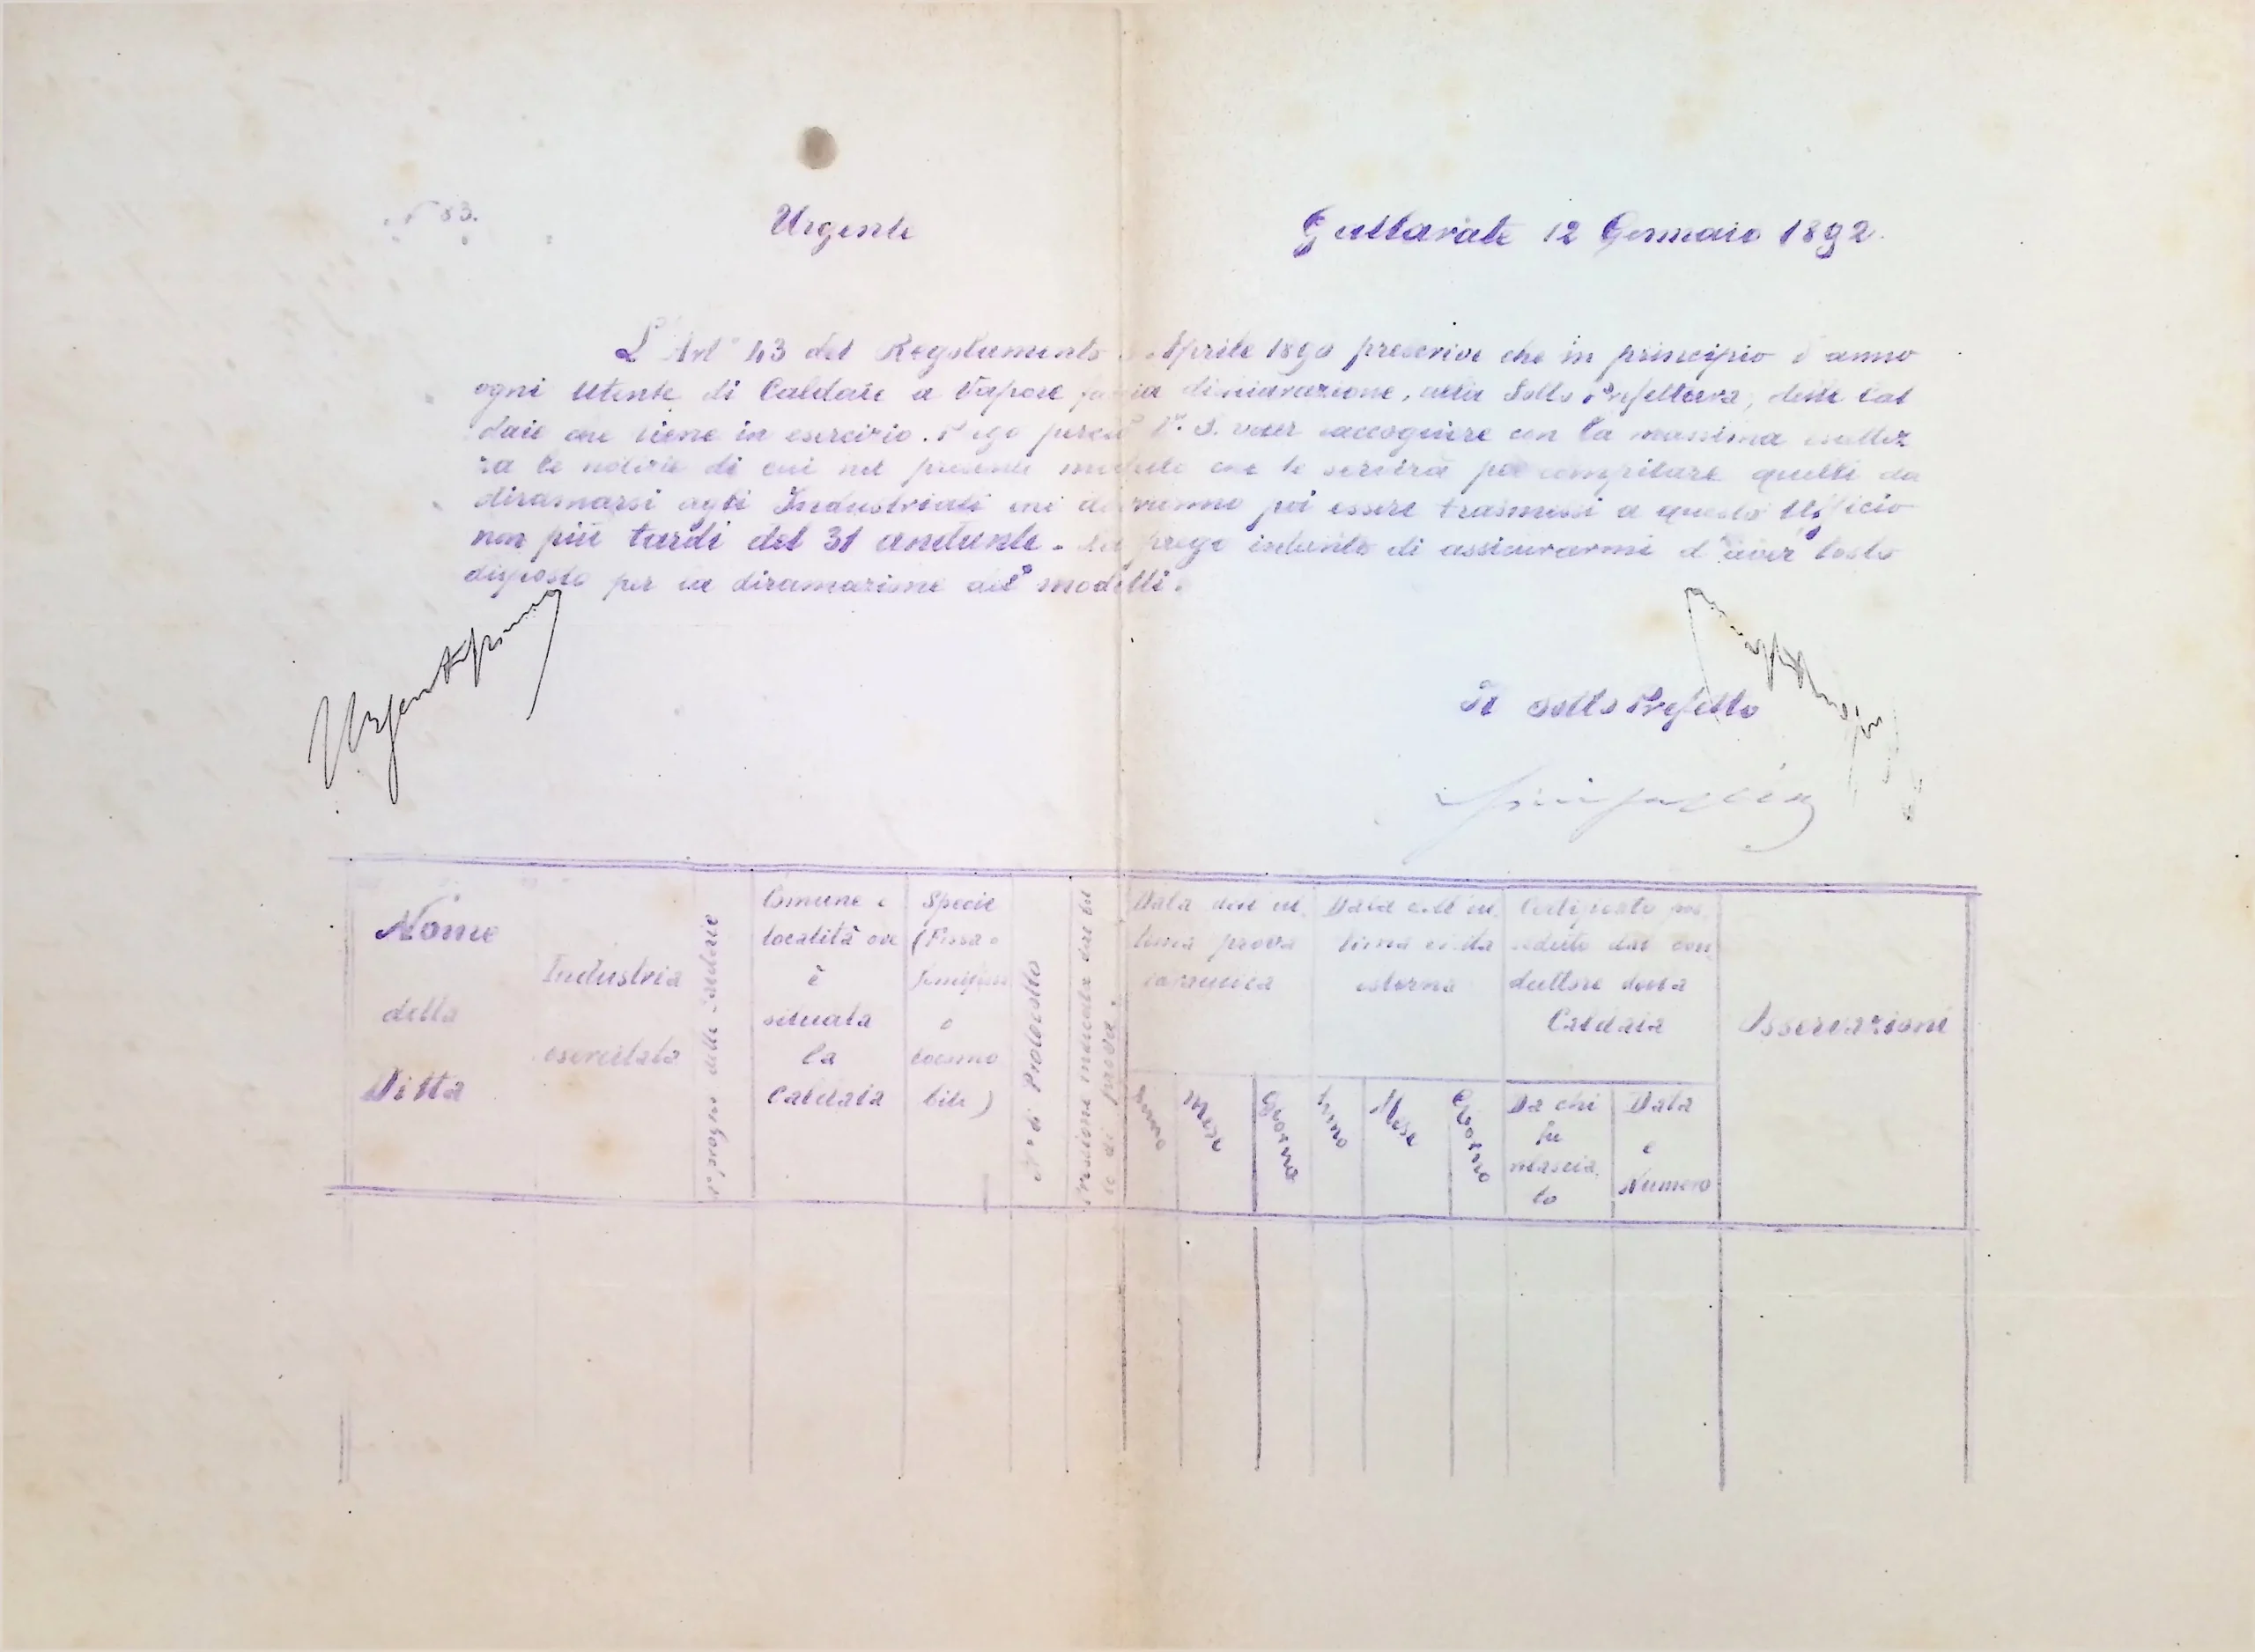 N 83.
Urgente
Gallarate 12 Gennaio 1892.
L'Art° 43 del Regolamento Aprile 1890 prescrive che in principio d'anno
ogni Utente di Caldaie a Vapore faccia dichiarazione, alla Sotto Prefettura, delle Cal
daie che tiene in esercizio. Prego perciò V. S. voler raccogliere con la massima esattez
za le notizie di cui nel presente modulo che le servirà per compilare quelli da
diramarsi agli Industriali che dovranno poi essere trasmessi a questo Ufficio
non più tardi del 31 andante. La prego intanto di assicurarmi d'aver tosto
disposto per la diramazione dei modelli.
Il Sotto Prefetto
Nome
della
Ditta
Industria
esercitata
N° progres delle Caldaie
Comune e
località ove
è
situata
la
Caldaia
Specie
(Fissa o
o
locomo
bile)
N° di Protocollo
Pressione indicata dal
le di prova.
Data dell'ul.
tima prova
idraulica
Anno
Mese
Giorno
Data dell'ul.
tima visita
esterna
Anno
Mese
Giorno
Certificato pos.
seduto dal con
duttore della
Caldaia
Da chi
fu
rilascia.
to
Data
e
Numero
Osservazioni